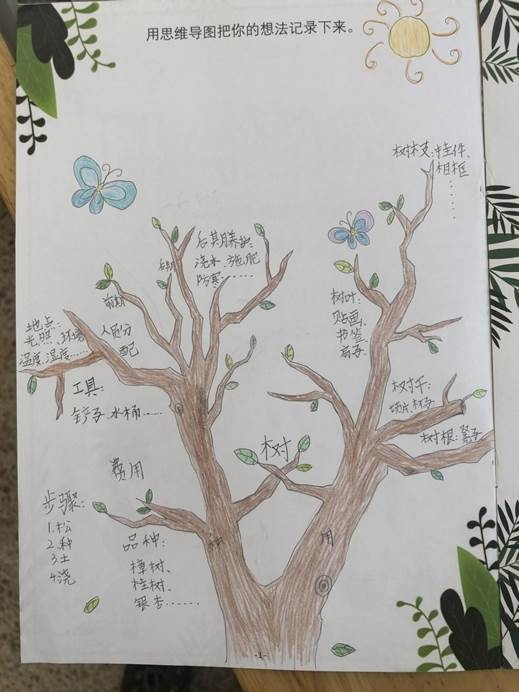 用思维导图把你的想法记录下来。
树枝:挂件、
相框
......
后期养护:
浇水、施肥
防寒......
后期
前期
地点:
光照、环境
温度、湿度......
人员分
配
工具:
铲子、水桶......
树叶:
贴画、
书签、
扇子
树干:
切片、柱子
树根:凳子
树
费用
步骤:
1.松
2.种
3.土
4.浇
品种:
樟树、
桂树、
银杏......
种
用